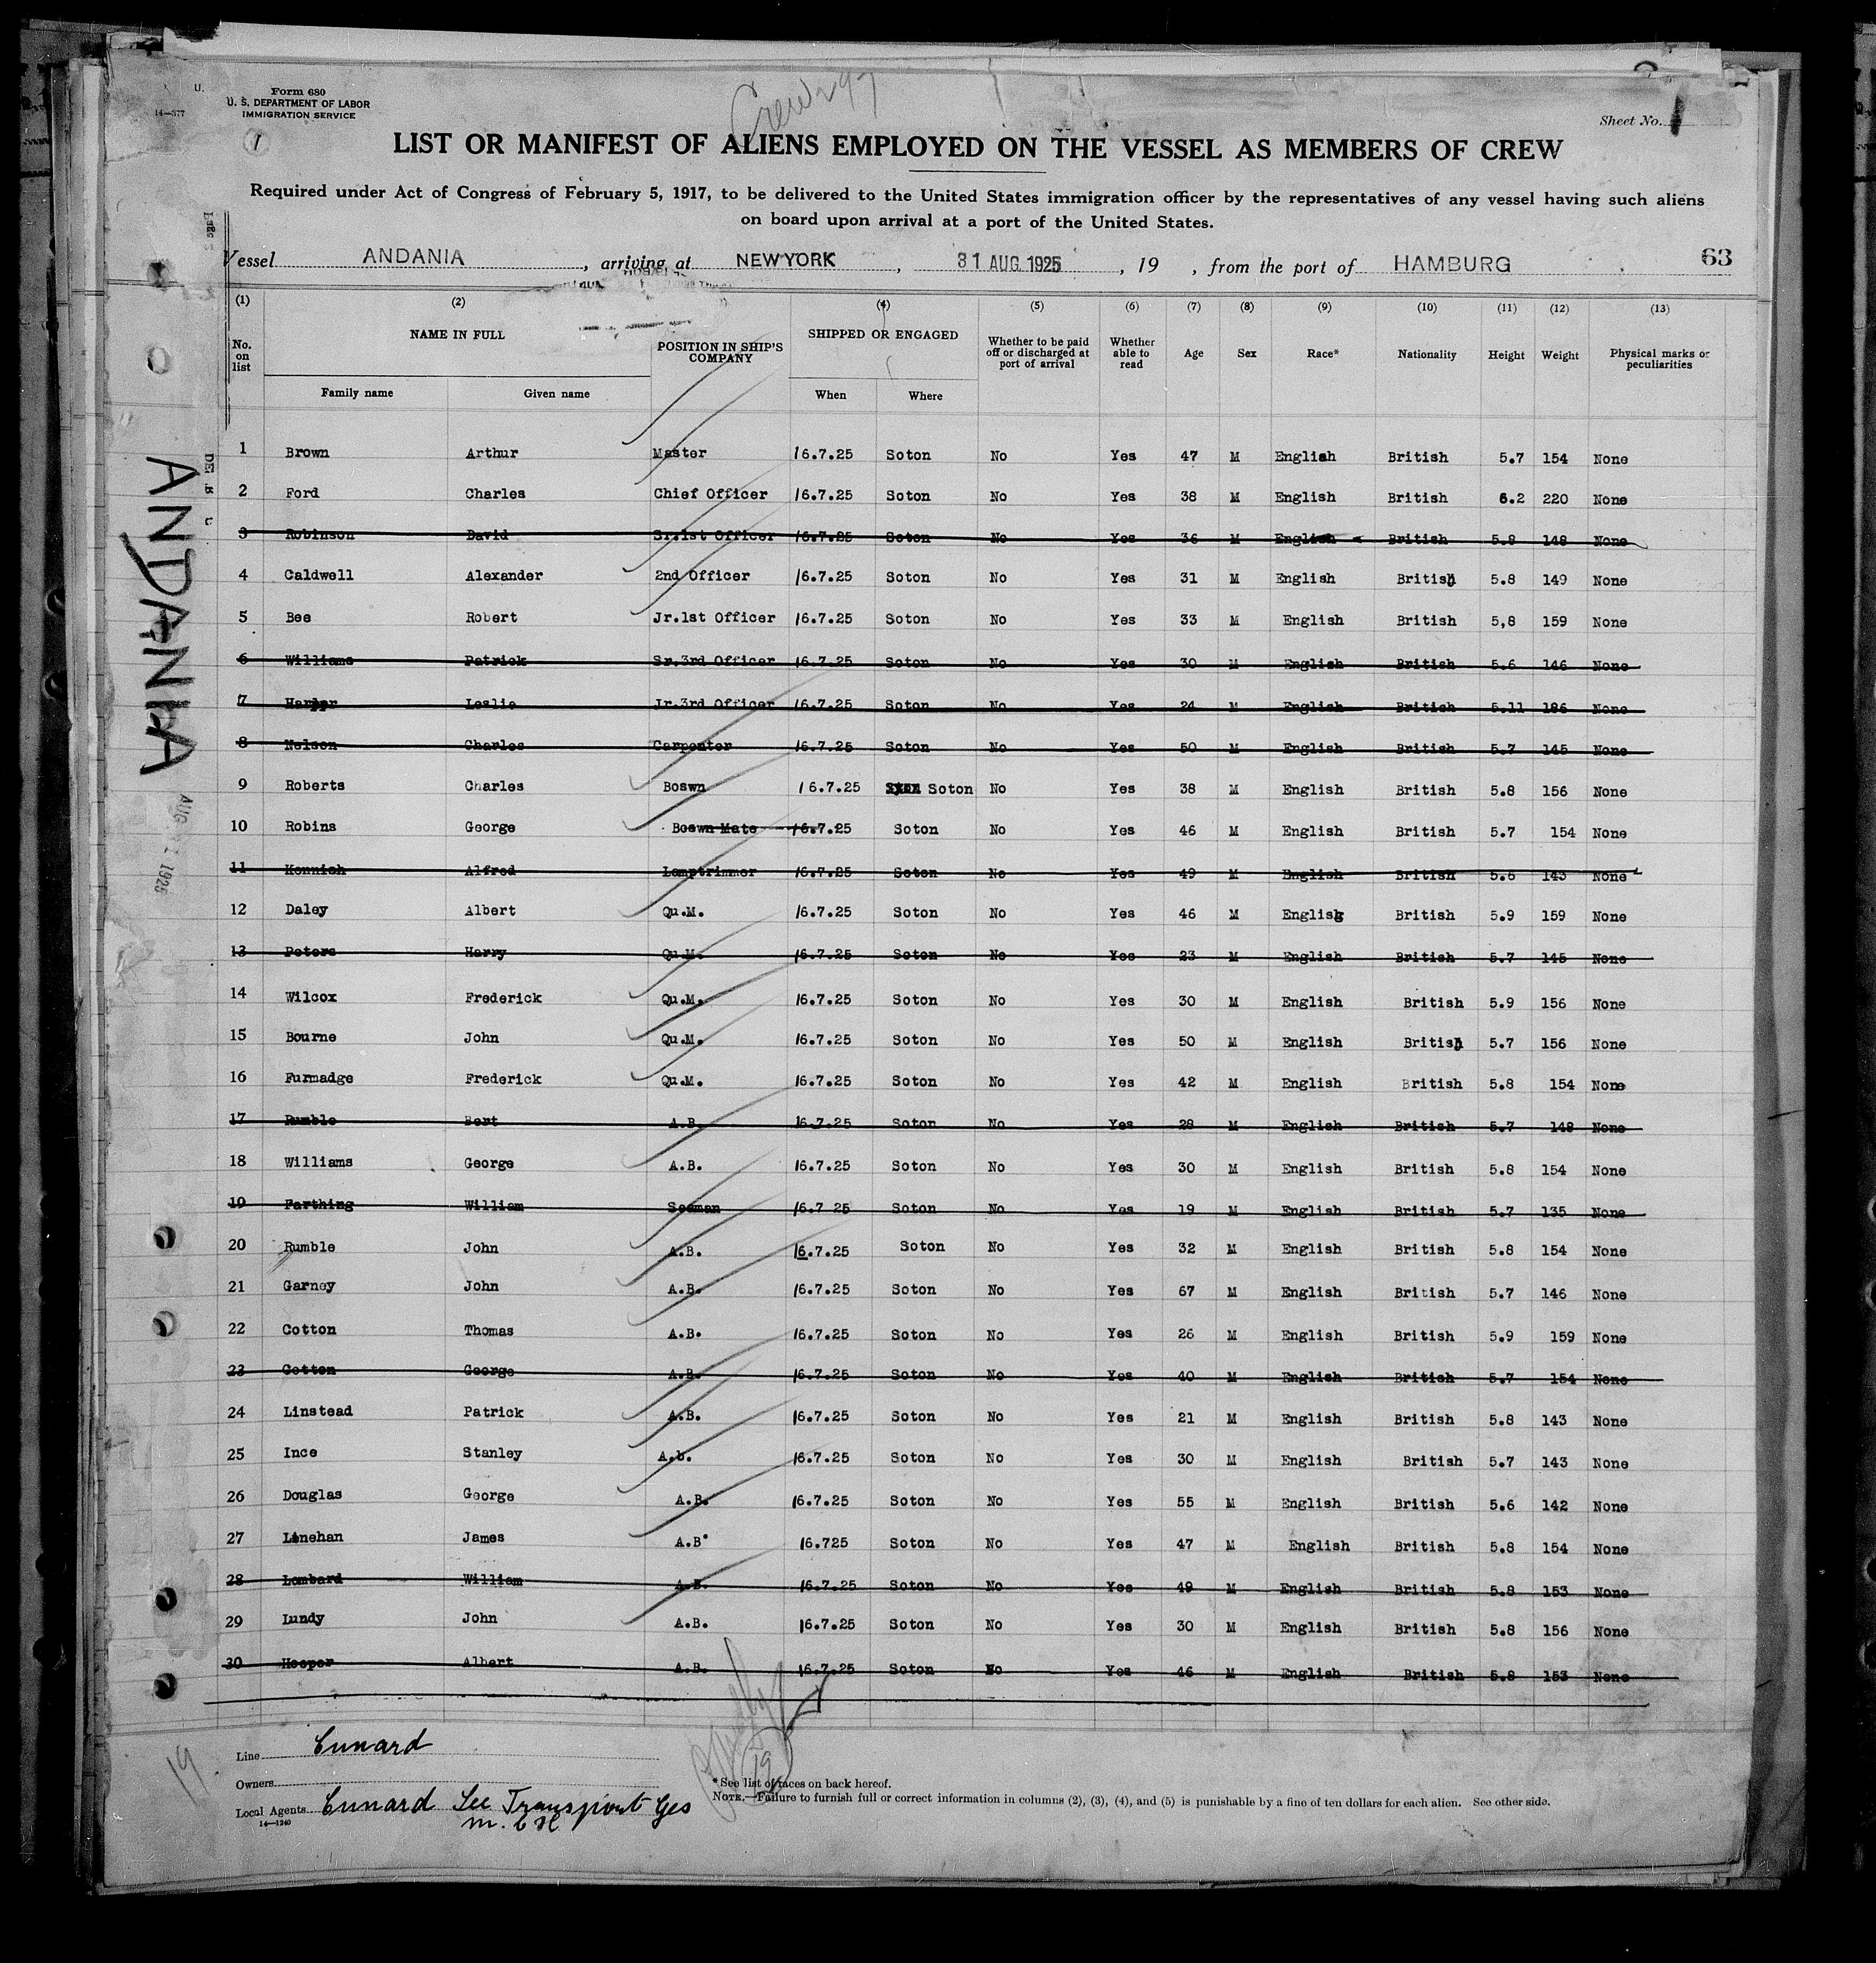 Form 680
U. S. DEPARTMENT OF LABOR
IMMIGRATION SERVICE
14—377
Crew 297
1
Sheet No. 1
LIST OR MANIFEST OF ALIENS EMPLOYED ON THE VESSEL AS MEMBERS OF CREW
Required under Act of Congress of February 5, 1917, to be delivered to the United States immigration officer by the representatives of any vessel having such aliens
on board upon arrival at a port of the United States.
Vessel ANDANIA, arriving at NEW YORK, 31 AUG 1925, 19 , from the port of HAMBURG 63
(1) (2) (4) (5) (6) (7) (8) (9) (10) (11) (12) (13)
No. on list NAME IN FULL Family name Given name POSITION IN SHIP'S COMPANY SHIPPED OR ENGAGED When Where Whether to be paid off or discharged at port of arrival Whether able to read Age Sex Race* Nationality Height Weight Physical marks or peculiarities
1 Brown Arthur Master 16.7.25 Soton No Yes 47 M English British 5.7 154 None
2 Ford Charles Chief Officer 16.7.25 Soton No Yes 38 M English British 6.2 220 None
3 Robinson David Sr.1st Officer 16.7.25 Soton No Yes 36 M English British 5.8 148 None
4 Caldwell Alexander 2nd Officer 16.7.25 Soton No Yes 31 M English British 5.8 149 None
5 Bee Robert Jr.1st Officer 16.7.25 Soton No Yes 33 M English British 5,8 159 None
6 Williams Patrick Sr.3rd Officer 16.7.25 Soton No Yes 30 M English British 5.6 146 None
7 Harper Leslie Jr.3rd Officer 16.7.25 Soton No Yes 24 M English British 5.11 186 None
8 Nelson Charles Carpenter 16.7.25 Soton No Yes 50 M English British 5.7 145 None
9 Roberts Charles Boswn 16.7.25 Soton No Yes 38 M English British 5.8 156 None
10 Robins George Boswn Mate 16.7.25 Soton No Yes 46 M English British 5.7 154 None
11 Kennish Alfred Lamptrimmer 16.7.25 Soton No Yes 49 M English British 5.6 143 None
12 Daley Albert Qu.M. 16.7.25 Soton No Yes 46 M English British 5.9 159 None
13 Peters Harry Qu.M. 16.7.25 Soton No Yes 23 M English British 5.7 145 None
14 Wilcox Frederick Qu.M. 16.7.25 Soton No Yes 30 M English British 5.9 156 None
15 Bourne John Qu.M. 16.7.25 Soton No Yes 50 M English British 5.7 156 None
16 Furmadge Frederick Qu.M. 16.7.25 Soton No Yes 42 M English British 5.8 154 None
17 Rumble Bert A.B. 16.7.25 Soton No Yes 28 M English British 5.7 148 None
18 Williams George A.B. 16.7.25 Soton No Yes 30 M English British 5.8 154 None
19 Farthing William Seaman 16.7 25 Soton No Yes 19 M English British 5.7 135 None
20 Rumble John A.B. 16.7.25 Soton No Yes 32 M English British 5.8 154 None
21 Garney John A.B. 16.7.25 Soton No Yes 67 M English British 5.7 146 None
22 Cotton Thomas A.B. 16.7.25 Soton No Yes 26 M English British 5.9 159 None
23 Cotton George A.B. 16.7.25 Soton No Yes 40 M English British 5.7 154 None
24 Linstead Patrick A.B. 16.7.25 Soton No Yes 21 M English British 5.8 143 None
25 Ince Stanley A.b. 16.7.25 Soton No Yes 30 M English British 5.7 143 None
26 Douglas George A.B. 16.7.25 Soton No Yes 55 M English British 5.6 142 None
27 Linehan James A.B. 16.725 Soton No Yes 47 M English British 5.8 154 None
28 Lombard William A.B. 16.7.25 Soton No Yes 49 M English British 5.8 153 None
29 Lundy John A.B. 16.7.25 Soton No Yes 30 M English British 5.8 156 None
30 Hooper Albert A.B. 16.7.25 Soton No Yes 46 M English British 5.8 153 None
ANDANIA
1925
19
19
Line Cunard
Owners
Local Agents Cunard See Transport Ges
m. b. H
14—1240
*See list of races on back hereof.
NOTE.—Failure to furnish full or correct information in columns (2), (3), (4), and (5) is punishable by a fine of ten dollars for each alien. See other side.